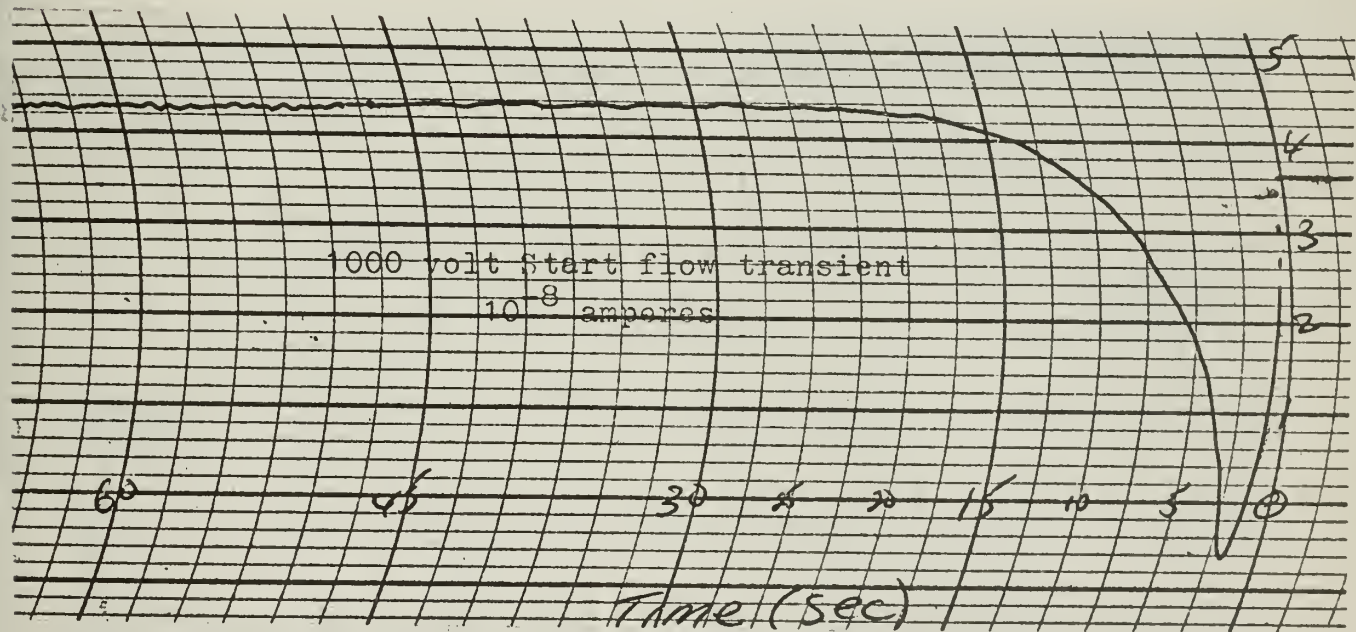 5
4
3
1000 volt Start flow transient
10⁻⁸ amperes
2
60 45 30 25 20 15 10 5 0
Time (sec)